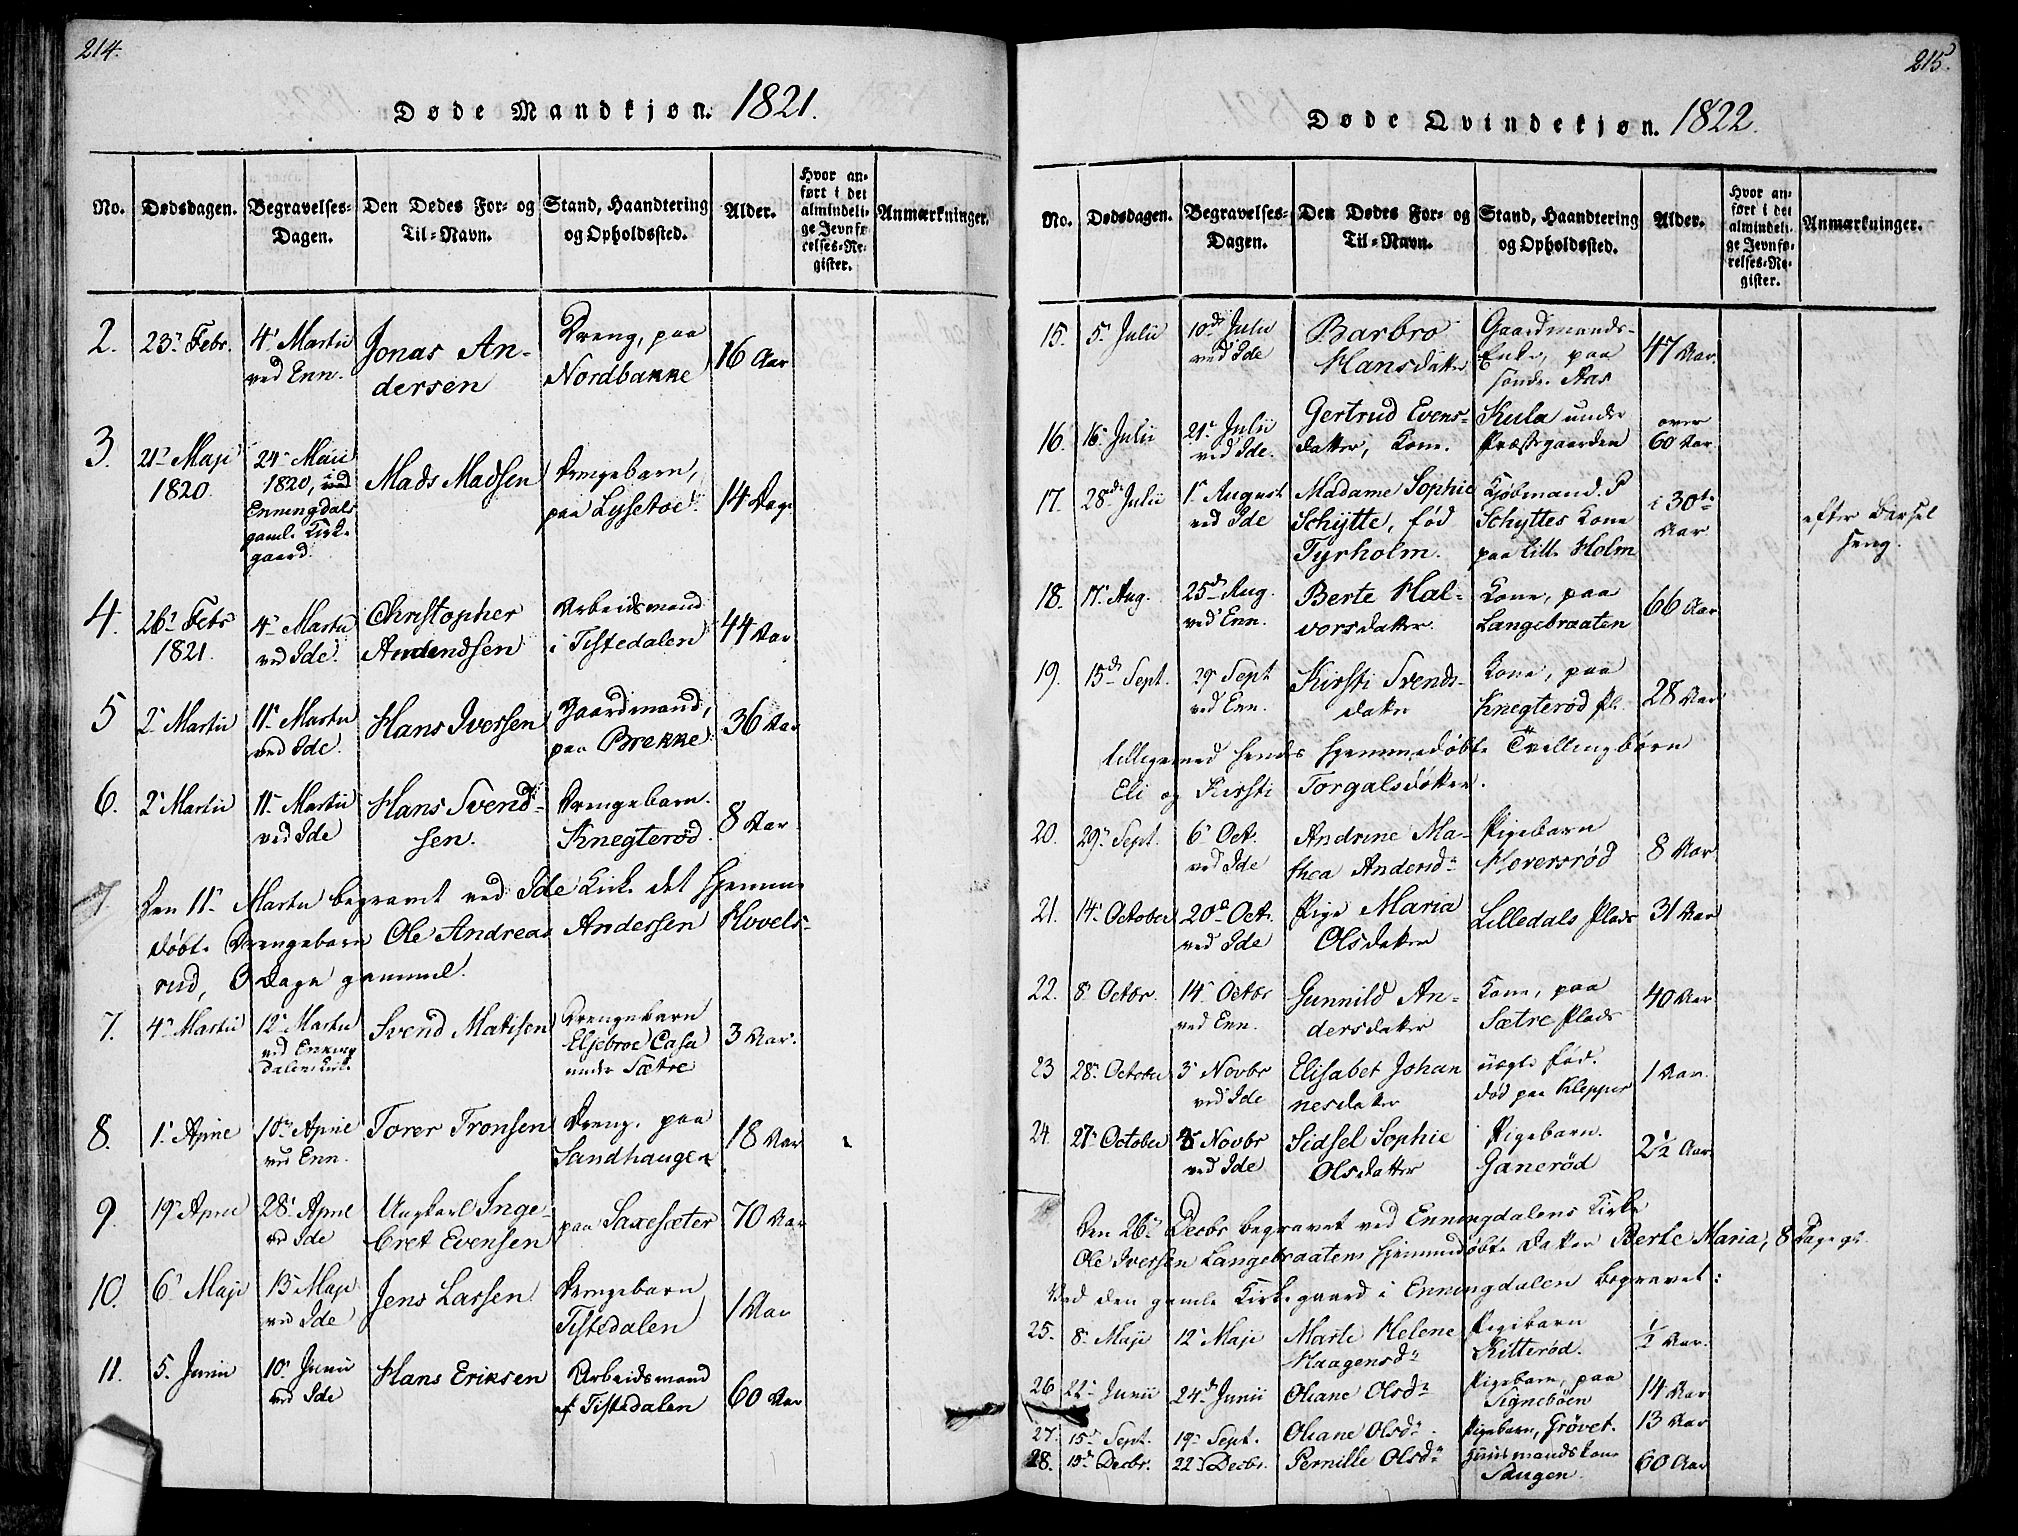 214.
Døde Mandkjøn. 1821.
No.
Dødsdagen.
Begravelses-
Dagen.
Den Dødes For- og
Til-Navn.
Stand, Haandtering
og Opholdssted.
Alder.
Hvor an-
ført i det
almindeli-
ge Jevnfø-
relses-Re-
gister.
Anmærkninger.
2. 23. Febr.
4. Martii
ved Enn.
Jonas An-
dersen
Dreng, paa
Nordbakke
16 Aar
3. 21. Maji
1820.
24. Maii
1820, ved
Enningdals
gamle Kirke
gaard.
Mads Madsen
Drengebarn,
paa Lysetoe.
14 Dage
4. 26. Febr
1821.
4. Martii
ved Ide.
Christopher
Amundsen
Arbeidsmand
i Tistedalen
44 Aar
5 2. Martii
11. Martii
ved Ide.
Hans Iversen
Gaardmand,
paa Brekke.
36 Aar
6. 2. Martii
11. Martii
ved Ide
Hans Svend-
sen.
Drengebarn.
Knegterød.
8 Aar
Den 11. Martii begravet ved Ide Kirke det hjemme
døbte Drengebarn Ole Andreas Andersen Hovels-
rud, 3 Dage gammel.
7. 4. Martii
12. Martii
ved Enning
dalens Kirke
Svend Matisen
Drengebarn
Elsebroe Casa
under Sætre
3 Aar.
8. 1. April
10. April
ved Enn.
Torer Tronsen
Dreng. paa
Sandhaugen
18 Aar
9. 19. April
28. April
ved Ide
Ungkarl Inge-
bret Evensen
paa Saxesæter
70 Aar
10. 6. Maji
13. Maji
ved Ide
Jens Larsen
Drengebarn
Tistedalen
1 Aar
11. 5. Junii
10. Junii
ved Ide
Hans Eriksen
Arbeidsmand
af Tistedalen
60 Aar
215.
Døde Qvindekjøn. 1822.
No.
Dødsdagen.
Begravelses-
Dagen.
Den Dødes For- og
Til-Navn.
Stand, Haandtering
og Opholdssted.
Alder.
Hvor an-
ført i det
almindeli-
ge Jevnfø-
relses-Re-
gister.
Anmærkninger.
15. 5. Julii
10de Julii
ved Ide
Barbro
Hansdatter
Gaardmands-
Enke, paa
søndre Aas
47 Aar.
16. 16. Julii
21. Julii
ved Ide.
Gertrud Evens-
datter, Kone.
Kula under
Præstgaarden
over
60 Aar
17. 28de Julii
1. August
ved Ide
Madame Sophie
Schytte, fød
Tyrholm.
Kjøbmand. P
Schyttes Kone
paa lille Holm
i 30te
Aar
efter Barsel
seng.
18. 17. Aug.
25de Aug.
ved Enn.
Berte Hal-
vorsdatter.
Kone, paa
Langebraaten
66 Aar
19. 15de Sept.
29. Sept
ved Enn.
Kirsti Svends-
datter
Kone, paa
Knegterød pl.
28 Aar
tilligemed hendes hjemmedøbte Tvillingbörn
Eli og Kirsti Torgalsdøttre.
20. 29. Sept.
6. Oct.
ved Ide
Andrine Ma-
thea Andersdr
Pigebarn
Hoversrød
8 Aar
21. 14. October
20d Oct.
ved Ide
Pige Maria
Olsdatter
Lilledals Plads
31 Aar
22. 8. Octbr.
14. Octbr
ved Enn.
Gunnild An-
dersdatter
Kone, paa
Sætre Plads
40 Aar
23 28. October
3. Novbr
ved Ide
Elisabet Johan
nesdatter
uægte fød.
død paa Klepper
1 Aar.
24. 27. October
8 Novbr
ved Ide
Sidsel Sophie
Olsdatter
Pigebarn.
Ganerød
2½ Aar
Den 26. Decbr begravet ved Enningdalens Kirke
Ole Iversen Langebraatens hjemmedøbte Datter Berte Maria, 8 Dage gl.
Ved den gamle Kirkegaard i Enningdalen begravet:
25. 8. Maji 12. Maji
Marte Helene
Haagensdr
Pigebarn
Kitterød.
½ Aar.
26 22. Junii 24de Junii Oliane Olsdr
Pigebarn, paa
Signebøen
14 Aar
27. 15. Sept. 19. Sept. Oliane Olsdr. Pigebarn, Grøvet. 13 Aar
28. 15. Decbr. 22. Decbr. Pernille Olsdr
Huusmandskone
Haugen.
60 Aar